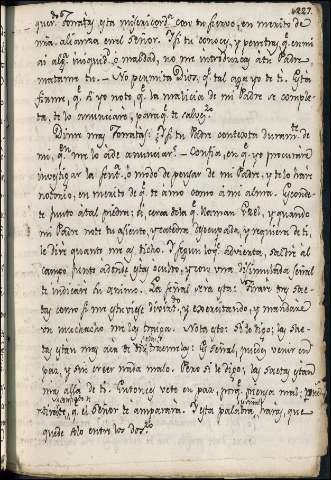 227.
quiendo Jonatas esta misericord.ª con tu siervo, en merito de
mia alianza en el Señor. Y si tu conoces, y penetras q.e en mi
ai alg.ª iniquid.d o maldad, no me introduzcas à tu Padre,
matame tu. – No permita Dios, q.e tal aga yo de ti. Esta
firme, q.e si yo noto q.e la malicia de mi Padre se comple-
ta, te lo anunciare, para q.e te salves.
Dime mas Jonatas: Y si tu Padre contexta duram.te de
mi, q.n me lo à de anunciar? – Confia, en q.e yo procurare
investigar la sent.ª, o modo de pensar de mi Padre, y te lo hare
notorio, en merito de q.e te amo como à mi alma. Esconde-
te junto à tal piedra: si cerca de la q.e llaman Ezel, y quando
mi Padre note tu asiento, y catedra desocupada, y requiera de ti,
le dire quanto me as dicho. Y segun lo q.e advierta, saldre al
campo junto adonde estas oculto, y con una disimulada señal
te indicare su animo. La señal sera esta: Tirare tres sae-
tas como si me estuviese divirt.do, y exercitando, y mandare
un muchacho me las traiga. Nota esto: si le digo; las sae-
tas estan mas acà de ti, traemelas: Es señal, puedes venir en
paz, y sin creer nada malo. Pero si le digo, las saetas estan
mas alla de ti. Entonces vete en paz, porq.e piensa mal;
q.e el Señor te amparara. Y esta palabra, haras, que
quede solo entre los dos.